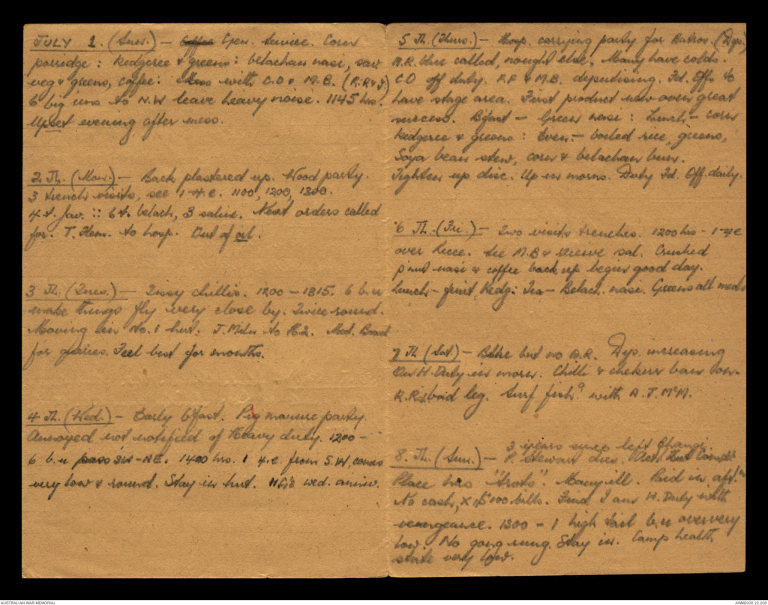 JULY 1. (Sun.) — Open. Service. Corn
porridge : kedgeree & greens : belachan nasi, saw
veg & greens, coffee. Mess with C.O & M.B. (R.R & J)
6 big uns to N.W leave heavy noise. 1145 hrs.
Upset evening after mess.
2 Th. (Mon.) — Back plastered up. Wood party.
3 trench visits, see 1-4 e. 1100, 1200, 1300.
4 t. Jav. :: 6 t. belach, 3 saline. Meat orders called
for. T. to hosp. Out of oil.
3 Th. (Tues.) — Issey chillies. 1200 - 1315. 6 b.u
make things fly very close by. Twice round.
Moving in No. 1 hut. J. Miln to H2. Mod. Board
for glasses. Feel best for months.
4 Th. (Wed.) — Early b'fast. Pig manure party.
Annoyed not notified of Heavy duty. 1200 -
6 b.u pass SW-NE. 1400 hrs. 1 4.e. from S.W. comes
very low & round. Stay in hut. wed. anniv.
5 Th. (Thurs.) — Hosp. carrying party for Kukros. (Dys)
A.R. blue called, nought else. Many have colds.
CO off duty. R.F & M.B. deputising. Fd. Offr to
have stage area. First product now over great
success. Bfast — Green nasi : Lunch — corn
kedgeree & greens : Even :— boiled rice, greens,
Soya bean stew, corn & belachan bun.
Tighten up disc. Up in morns. Duty Fd. Off. daily.
6 Th. (Fri.) — Two visits trenches. 1200 hrs - 1-4e
over Recce. See M.B & reserve sal. Crushed
p'nut nasi & coffee back up begus good day.
Lunch - fruit Kedg: Tea - Belach. nasi. Greens all meals
7 Th. (Sat) — Bthe but no A.R. Dys. increasing
On H. Duty in morn. Chilli & chekurr bau
K. Risboid leg. Surf fish? with A.T. McM.
8. Th. (Sun.) — 3 years since left Changi.
P. Stewart dies.
Place has "trots". Many ill. Paid in aft.
No cash, X $100 bills. Find I am H. Duty with
vengeance. 1300 - 1 high tail b.u over very
low. No gong rung. Stay in. Camp health
state very low.
AUSTRALIAN WAR MEMORIAL